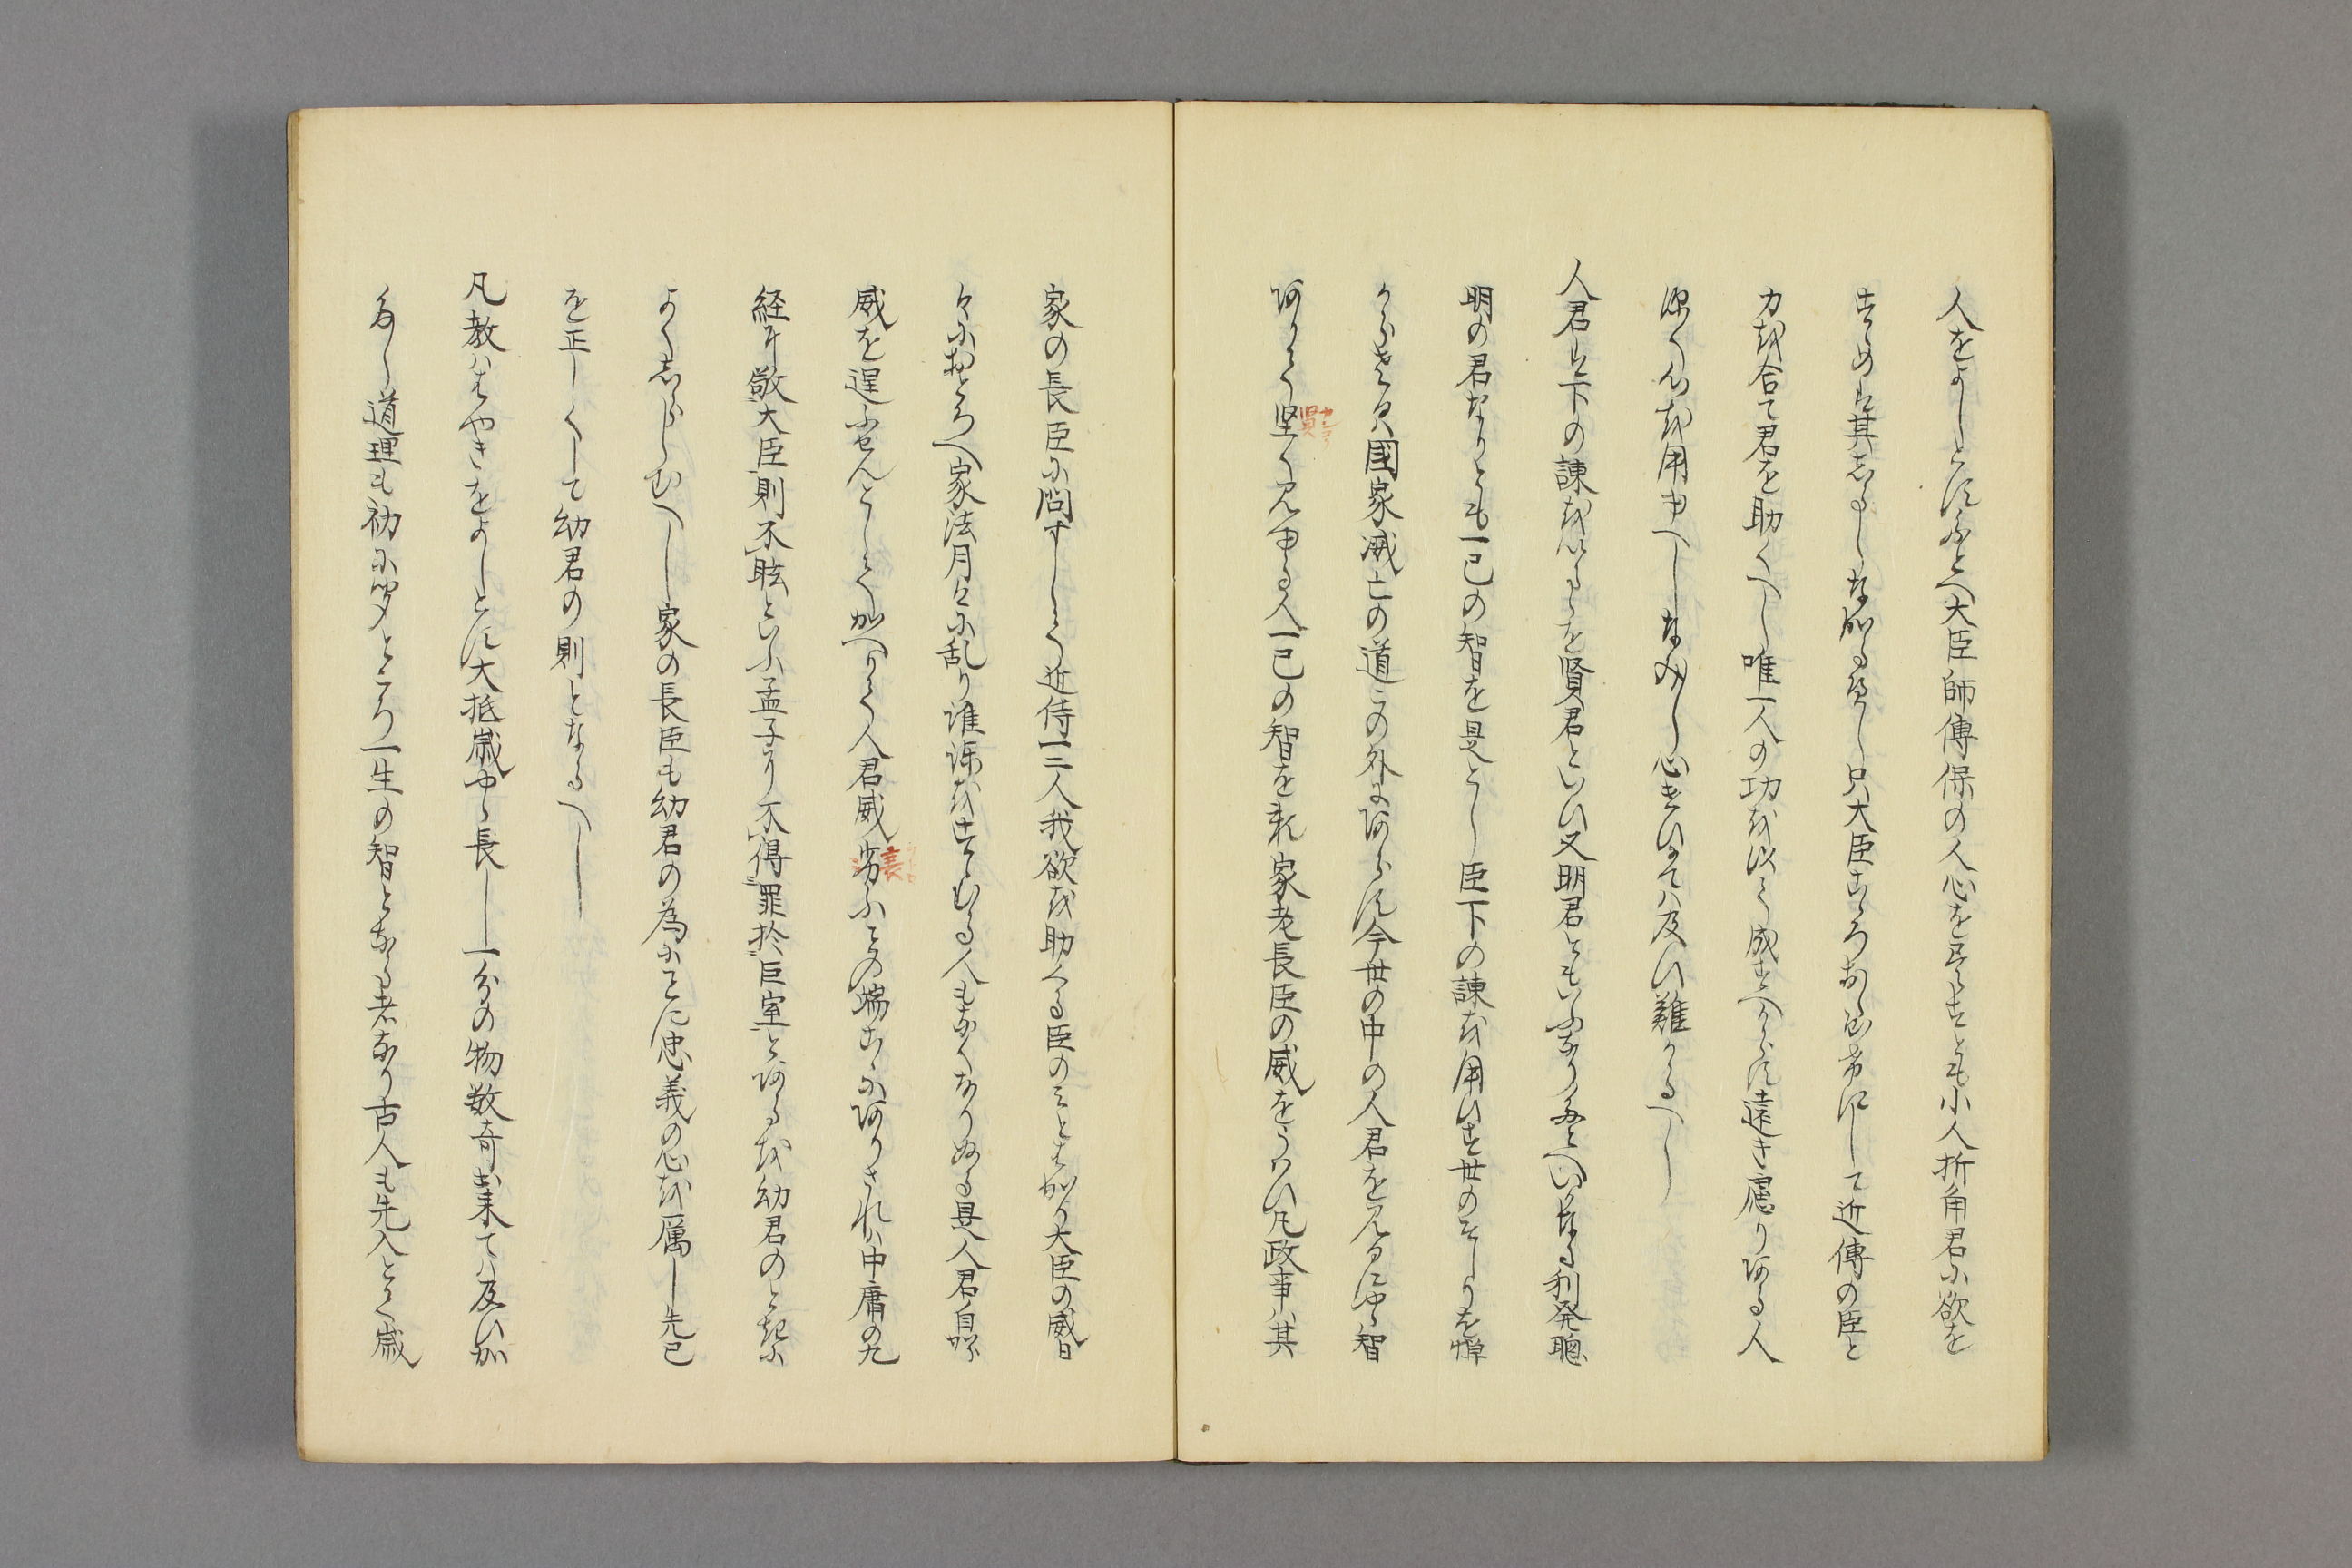 人をよしとすたとへ大臣師傅保の人心を尽すとも小人折角君に欲を
すゝめは其志るしなかるへし只大臣こゝろおなし都にして近傅の臣と
力を合て君を助くへし唯一人の功を以て成すへからす遠き慮りある人
深く心を用申へしなみ〳〵心きひにては及ひ難かるへし
人君は下の諫を以るゝを賢君といひ又明君ともいふなりたとへいかなる利発聰
明の君なりとも一己の智を是とし臣下の諫を用ひす世のそしりを憚
からされは國家滅亡の道この外にあらす今世の中の人君を見るに少智
ありて堅く見ゆる人一己の智を表家老長臣の威をうはひ凡政事は其
賢
家の長臣に問すして近侍一二人我欲を助くる臣のことはかり大臣の威日
々におとろへ家法月々に乱り誰諫をすゝむる人もなくなりぬる是人君自然
威を逞ふせんとしてかへりて人君威劣ふるの端こゝにありされは中庸の九
衰
経に敬大臣則不眩といふ孟子に不得罪於巨室とあるを幼君のときに
よく志らしむへし家の長臣も幼君の為にことに忠義の心を厲し先己
を正しくして幼君の則となるへし
凡教ははやきをよしとす大抵歳やゝ長し一分の物数奇出来ては及ひか
たし道理も初に聞ところ一生の智となる者なり古人も先入とて歳